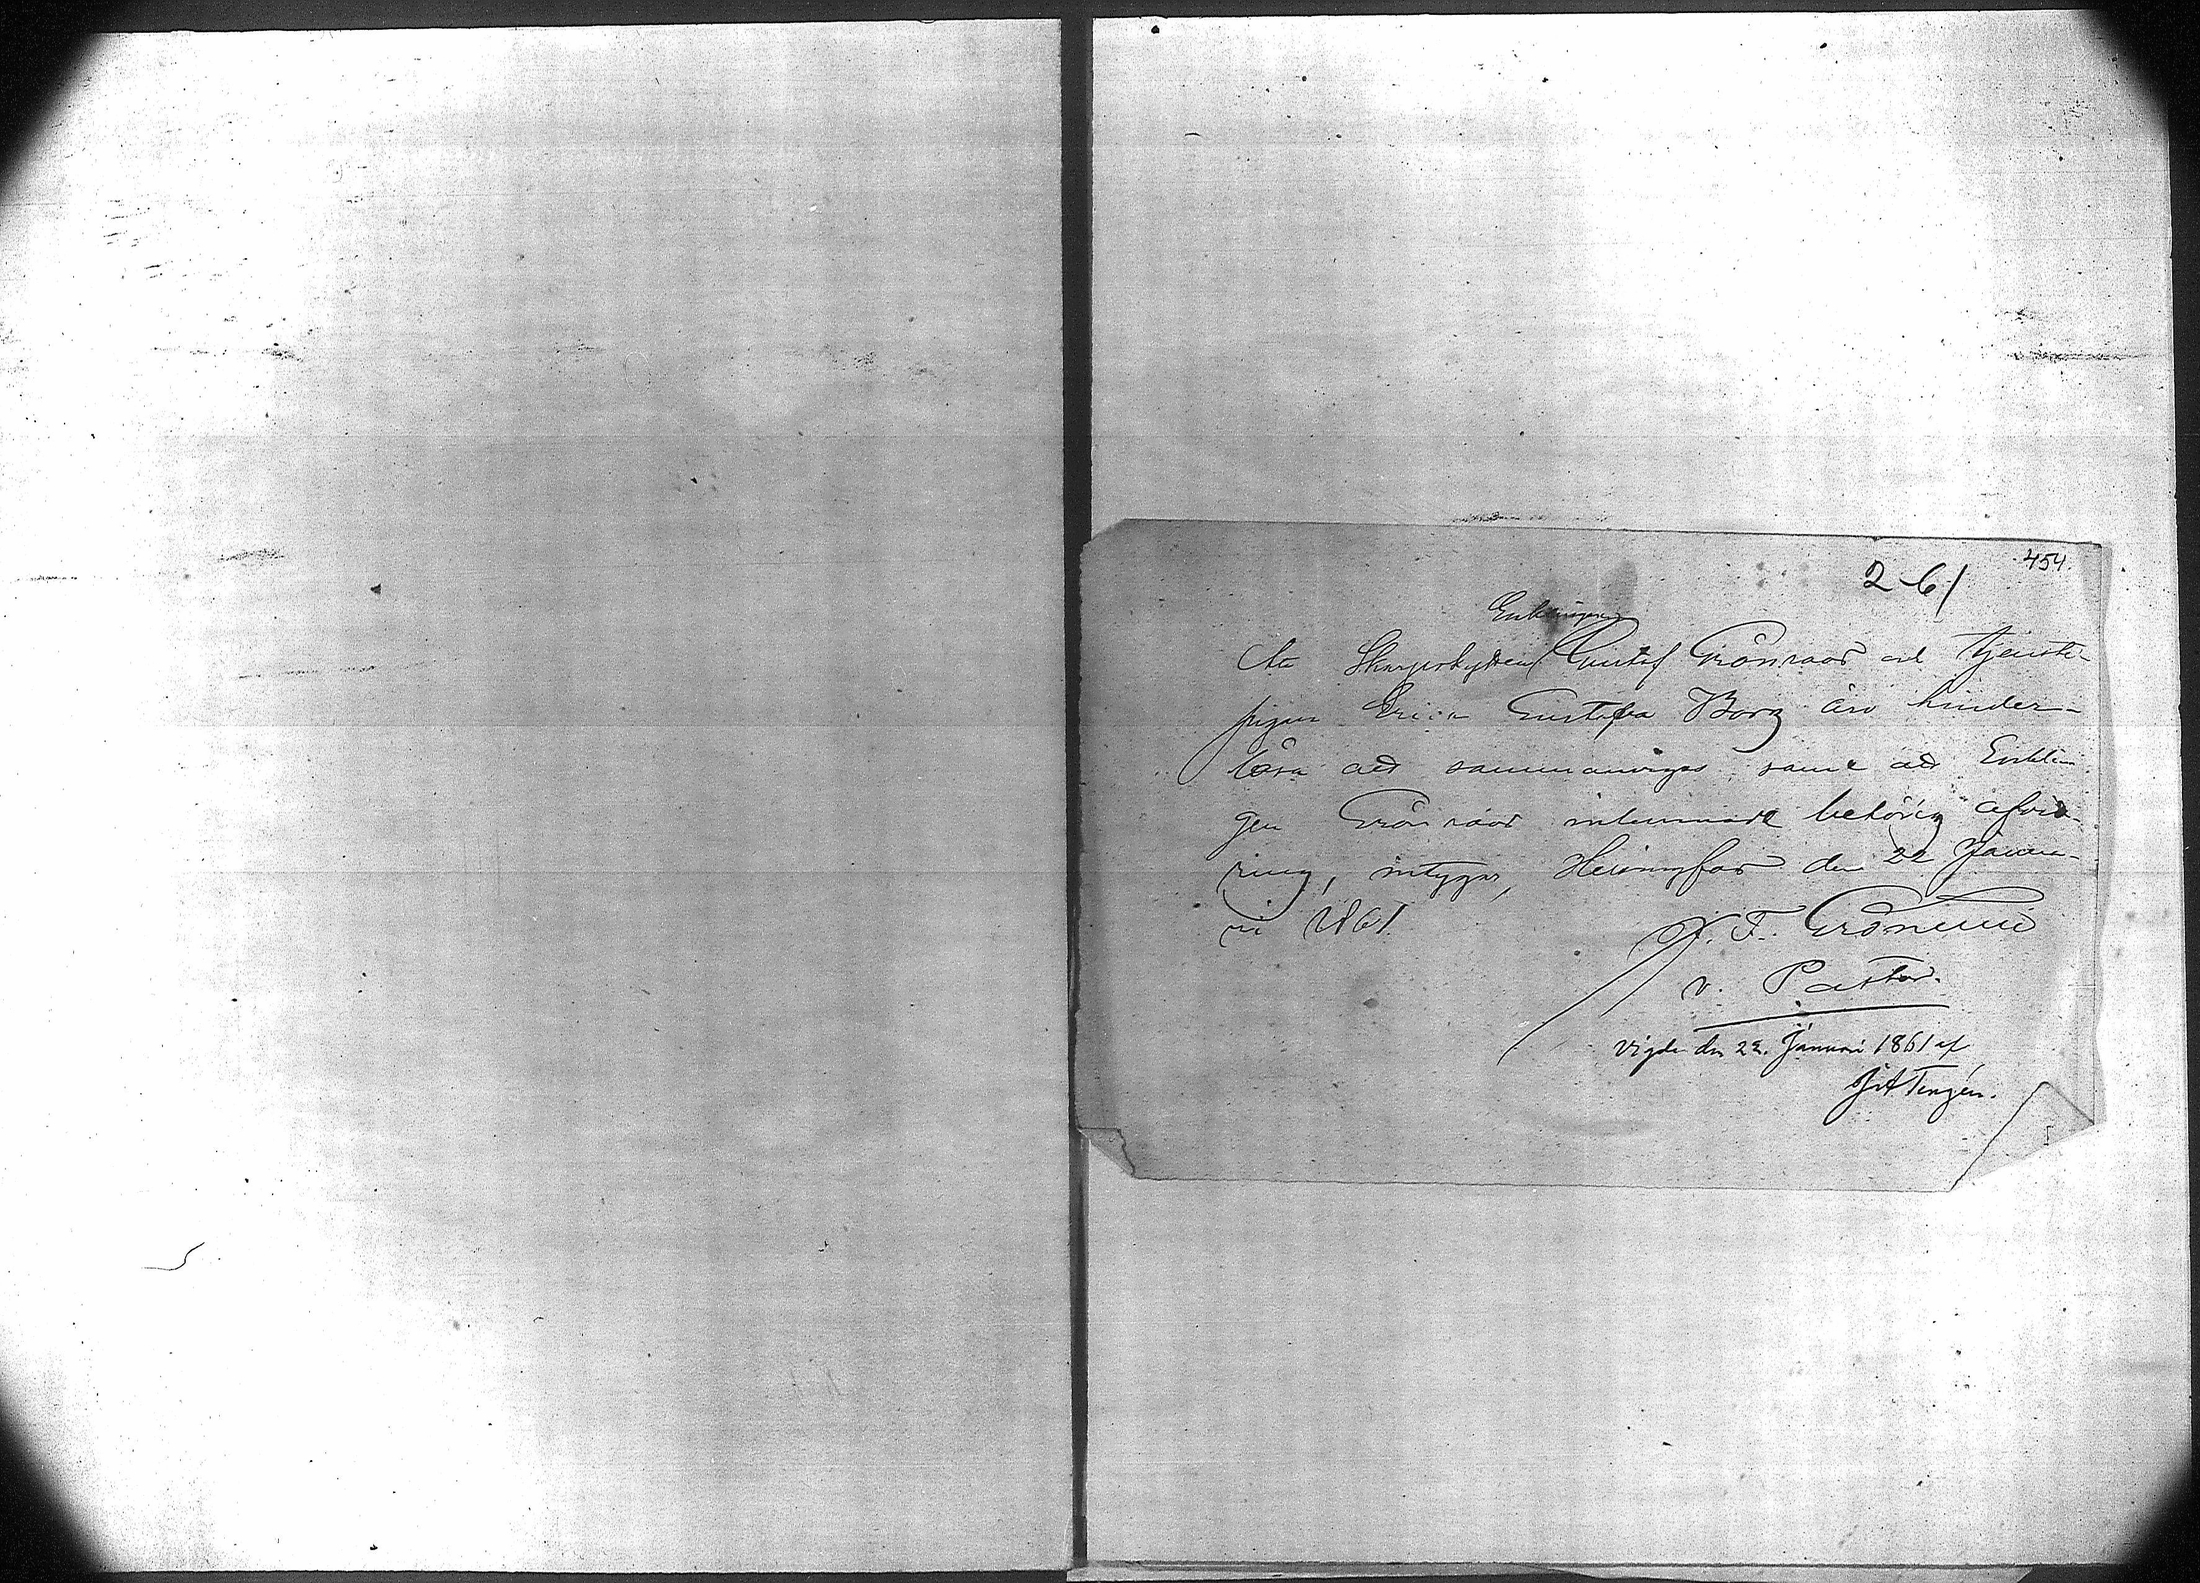 454.
2-61
Enklingen
Att Skarpskytten Gustaf Grönroos och tjenste-
pigan Erica Gustafva Borg äro hinder-
lösa att sammanvigas samt att Enklin-
gen Grönroos inlemnadt behörig afvitt-
ring, intygar, Helsingfors den 22 Janua-
ri 1861.
F. Grönlund
v. Pastor.
Vigde den 22. Januari 1861 af